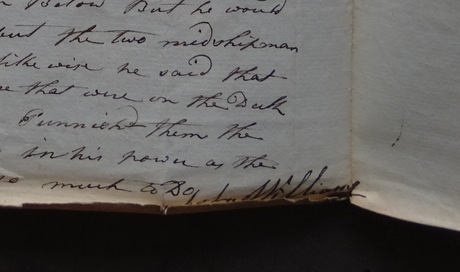 Below But he would
the two midshipman
likewise he said that
that were on the Deck
Punnishd them the
in his power as the
so much to Do John Williams